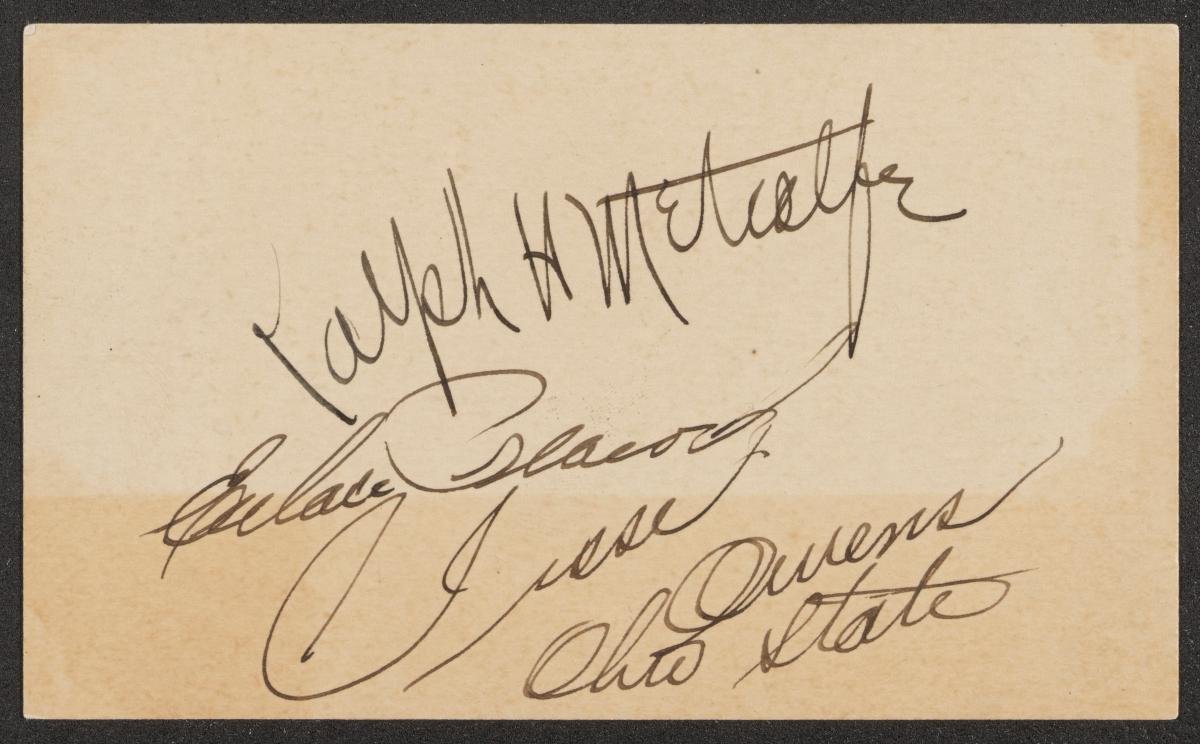 Ralph H Metcalfe
Eulace Peacock
Jesse Owens
Ohio State